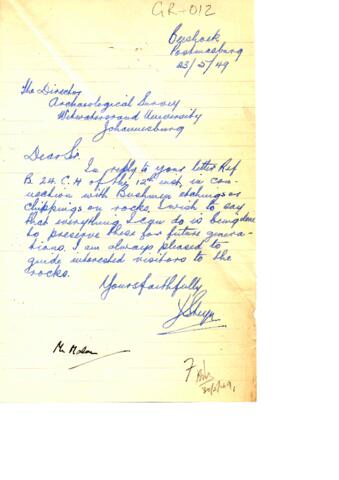 GR-012
Beeshoek
Postmasburg
23/5/49
The Director
Archaeological Survey
Witwatersrand University
Johannesburg
Dear Sir.
In reply to your letter Ref
B. 24. C. H of the 12th inst, in con-
nection with Bushmen etchings or
chippings on rocks, I wish to say
that everything I can do is being done
to preserve these for future genera-
tions. I am always pleased to
guide interested visitors to the
rocks.
Yours faithfully
Mr
F
30/5/49.